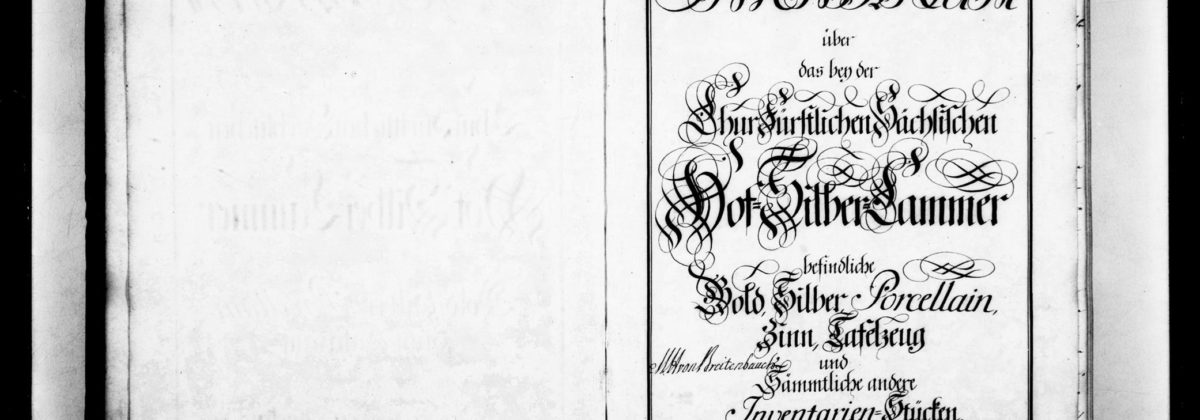 über
das bey der
ChurFürstlichen Sächsischen
Hof=Silber=Cammer
befindliche
Gold, Silber, Porcellain,
Zinn, Tafelzeug
und
Sämmtliche andere
Inventarien=Stücken,